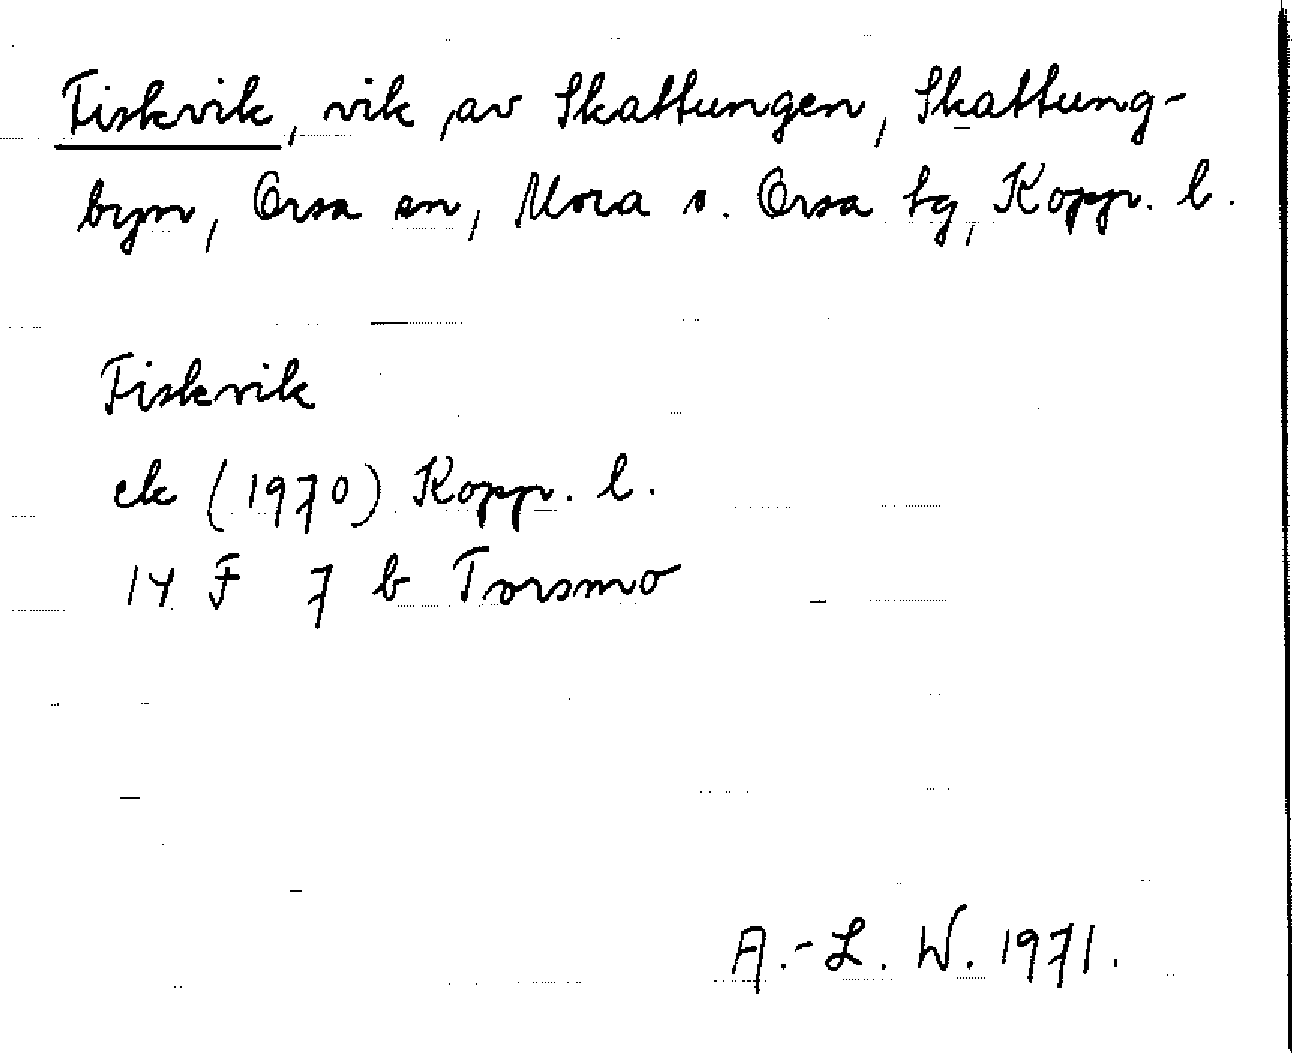 Fiskvik, vik av Skattungen, Skattung-
byn, Orsa sn, Mora o. Orsa tg, Kopp. l.
Fiskvik
ek (1970) Kopp. l.
14 F 7 b Torsmo
A.-L. W. 1971.